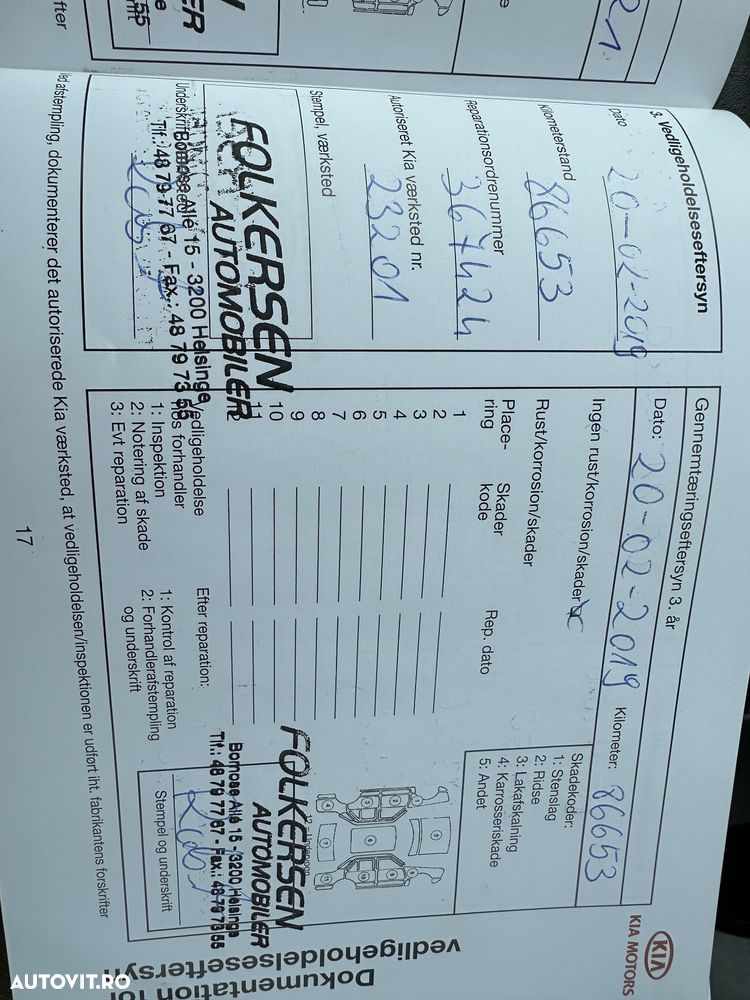 Dokumentation for
vedligeholdelseseftersyn
KIA
KIA MOTORS
3. Vedligeholdelseseftersyn
Dato 20-02-2019
Kilometerstand 86653
Reparationsordrenummer 367424
Autoriseret Kia værksted nr. 23201
Stempel, værksted
FOLKERSEN
AUTOMOBILER
Bomose Alle 15 - 3200 Helsinge
Tlf.: 48 79 77 67 - Fax.: 48 79 73 55
Gennemtæringseftersyn 3. år
Dato: 20-02-2019 Kilometer: 86653
Ingen rust/korrosion/skader
Rust/korrosion/skader
Place-
ring
Skader
kode
Rep. dato
Skadekoder:
1: Stenslag
2: Ridse
3: Lakafskalning
4: Karrosseriskade
5: Andet
1
2
3
4
5
6
7
8
9
10
11
Vedligeholdelse
hos forhandler
1: Inspektion
2: Notering af skade
3: Evt reparation
Efter reparation:
1: Kontrol af reparation
2: Forhandlerafstempling
og underskrift
FOLKERSEN
AUTOMOBILER
Bomose Alle 15 - 3200 Helsinge
Tlf.: 48 79 77 67 - Fax.: 48 79 73 55
Stempel og underskrift
afstempling, dokumenterer det autoriserede Kia værksted, at vedligeholdelsen/inspektionen er udført iht. fabrikantens forskrifter
17
AUTOVIT.RO